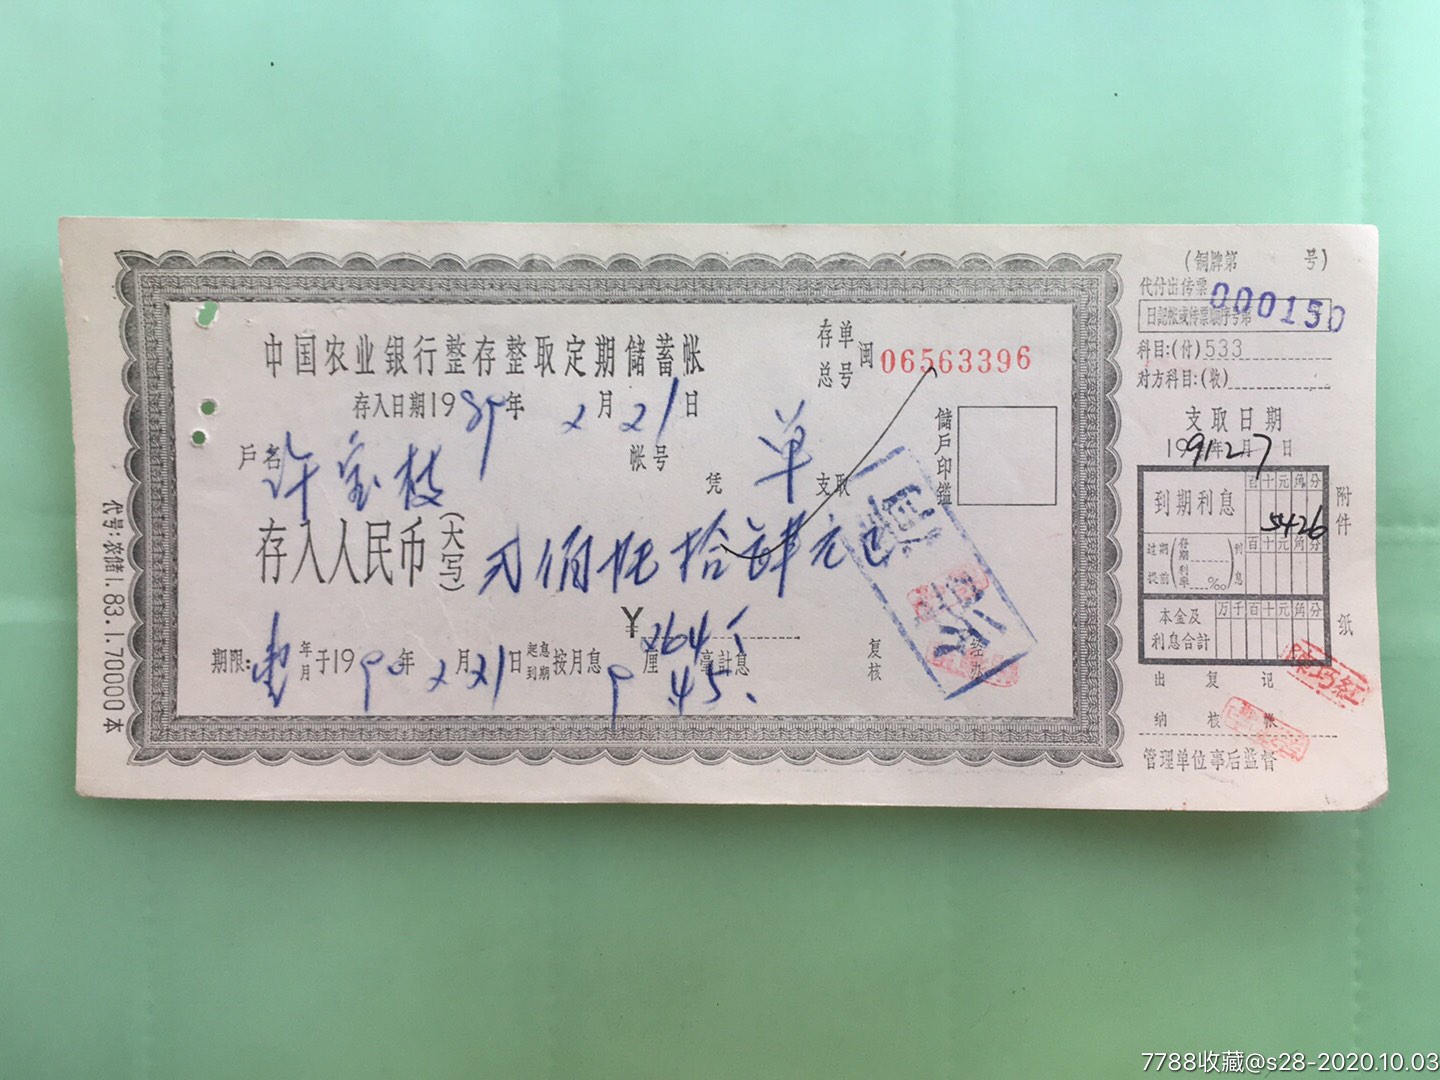 中国农业银行整存整取定期储蓄帐
存单总号 闽 06563396
存入日期1989年2月21日
户名 许宝枝 帐号
凭 单 支取
储户印鉴
存入人民币(大写) 贰佰陆拾肆元正
¥ 264
期限: 壹 年月 于1990年2月21日 起息到期 按月息 9厘 45 毫计息
复核
经办
代号:农储1.83.1.70000本
(铜牌第 号)
代付出传票
日记帐或传票顺序号第 000150
科目:(付)533
对方科目:(收)
支取日期
1991年2月7日
到期利息 百十元角分
5426
过期 提前 存期 利率 ‰ 利息 百十元角分
本金及利息合计 万千百十元角分
附件 纸
出纳 复核 记帐
陈巧红
管理单位事后监督
7788收藏@s28-2020.10.03